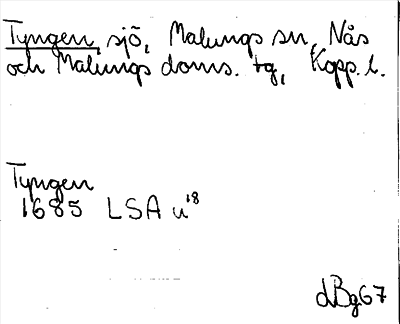 Tyngen, sjö, Malungs sn, Nås
och Malungs doms. tg, Kopp. l.
Tyngen
1685 LSA u18
dBg67